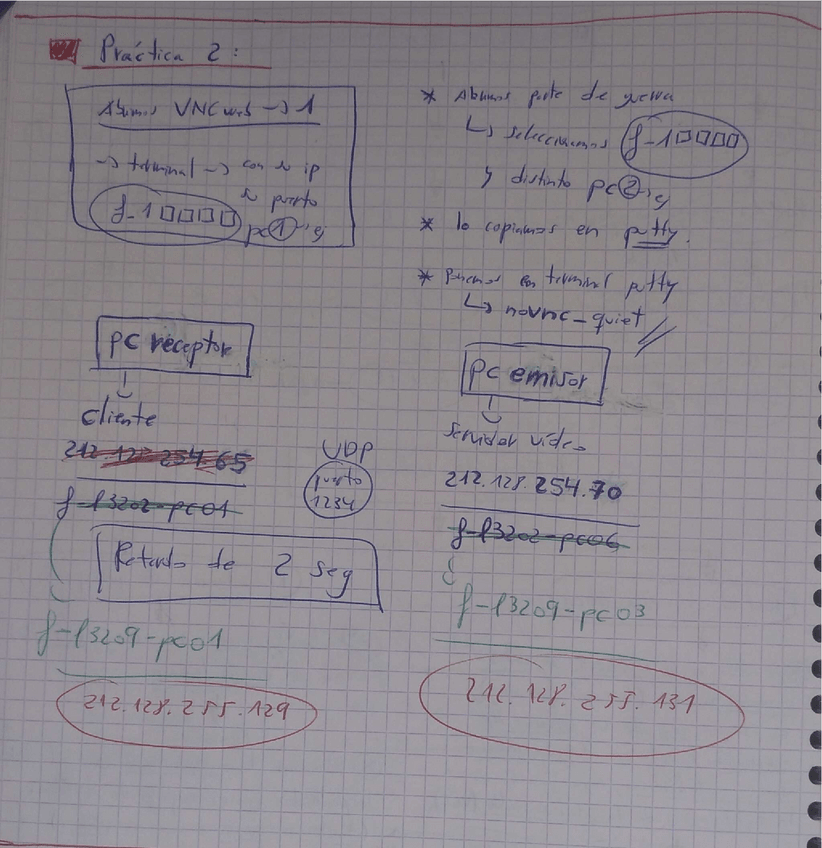 Práctica 2:
Abrimos VNC web -> 1
-> terminal -> con su ip
su puerto
f-l□□□□
pc①'s
* Abrimos parte de guerra
↳ seleccionamos f-l□□□□
y distinto pc②'s
* lo copiamos en putty.
* Ponemos en terminal putty
↳ novnc-quiet
pc receptor
cliente
212.128.254.65
f-l3202-pc01
UDP
puerto
1234
Retardo de 2 seg
f-l3209-pc01
212.128.255.129
pc emisor
servidor vídeo
212.128.254.70
f-l3202-pc06
f-l3209-pc03
212.128.255.131